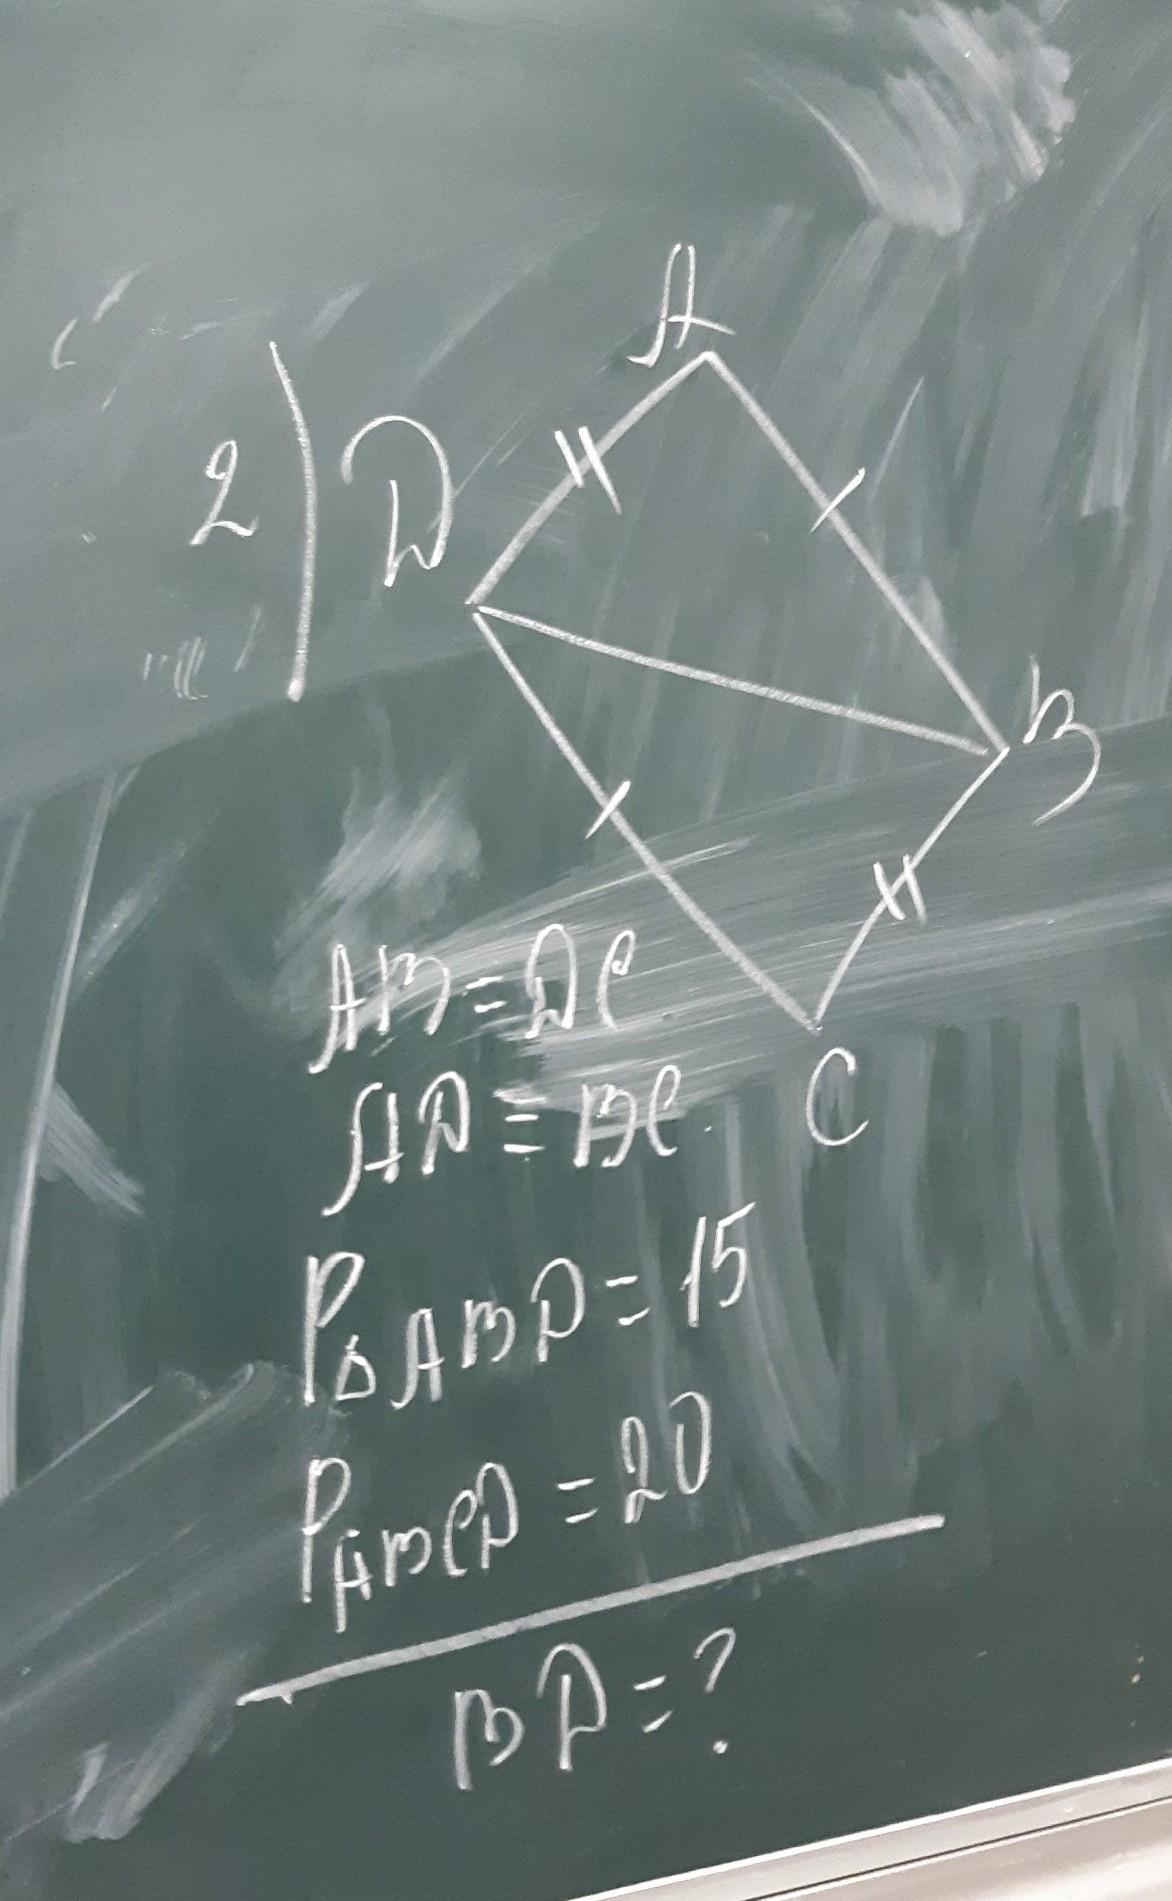 2)
A
D
B
C
AB = DC
AD = BC.
P△ABD = 15
PABCD = 20
BD = ?